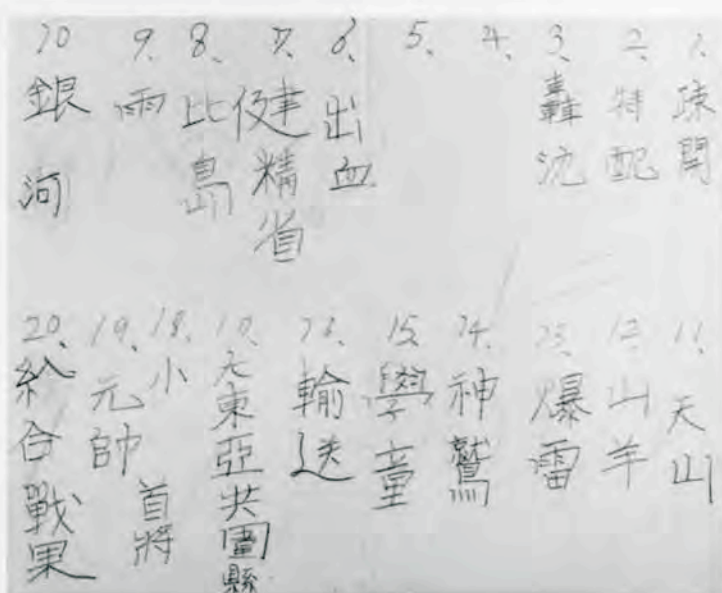 1、疎開
2、特配
3、轟沈
4、
5、
6、出血
7、健精省
8、比島
9、雨
10 銀河
11、天山
12、山羊
13、爆雷
14、神鷲
15、學童
16、輸送
17、大東亞共圏縣
18、小首將
19、元帥
20、合戰果